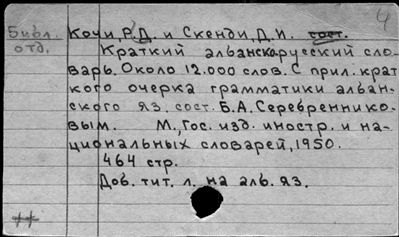 4
Библ. Кочи, Р.Д. и Скенди, Д.И. сост.
отд. Краткий албанско-русский сло-
варь. Около 12.000 слов. С прил. крат
кого очерка грамматики албан-
ского яз. сост. Б.А. Серебреннико-
вым. М., Гос. изд. иностр. и на-
циональных словарей, 1950.
464 стр.
Доб. тит. л. на алб. яз.